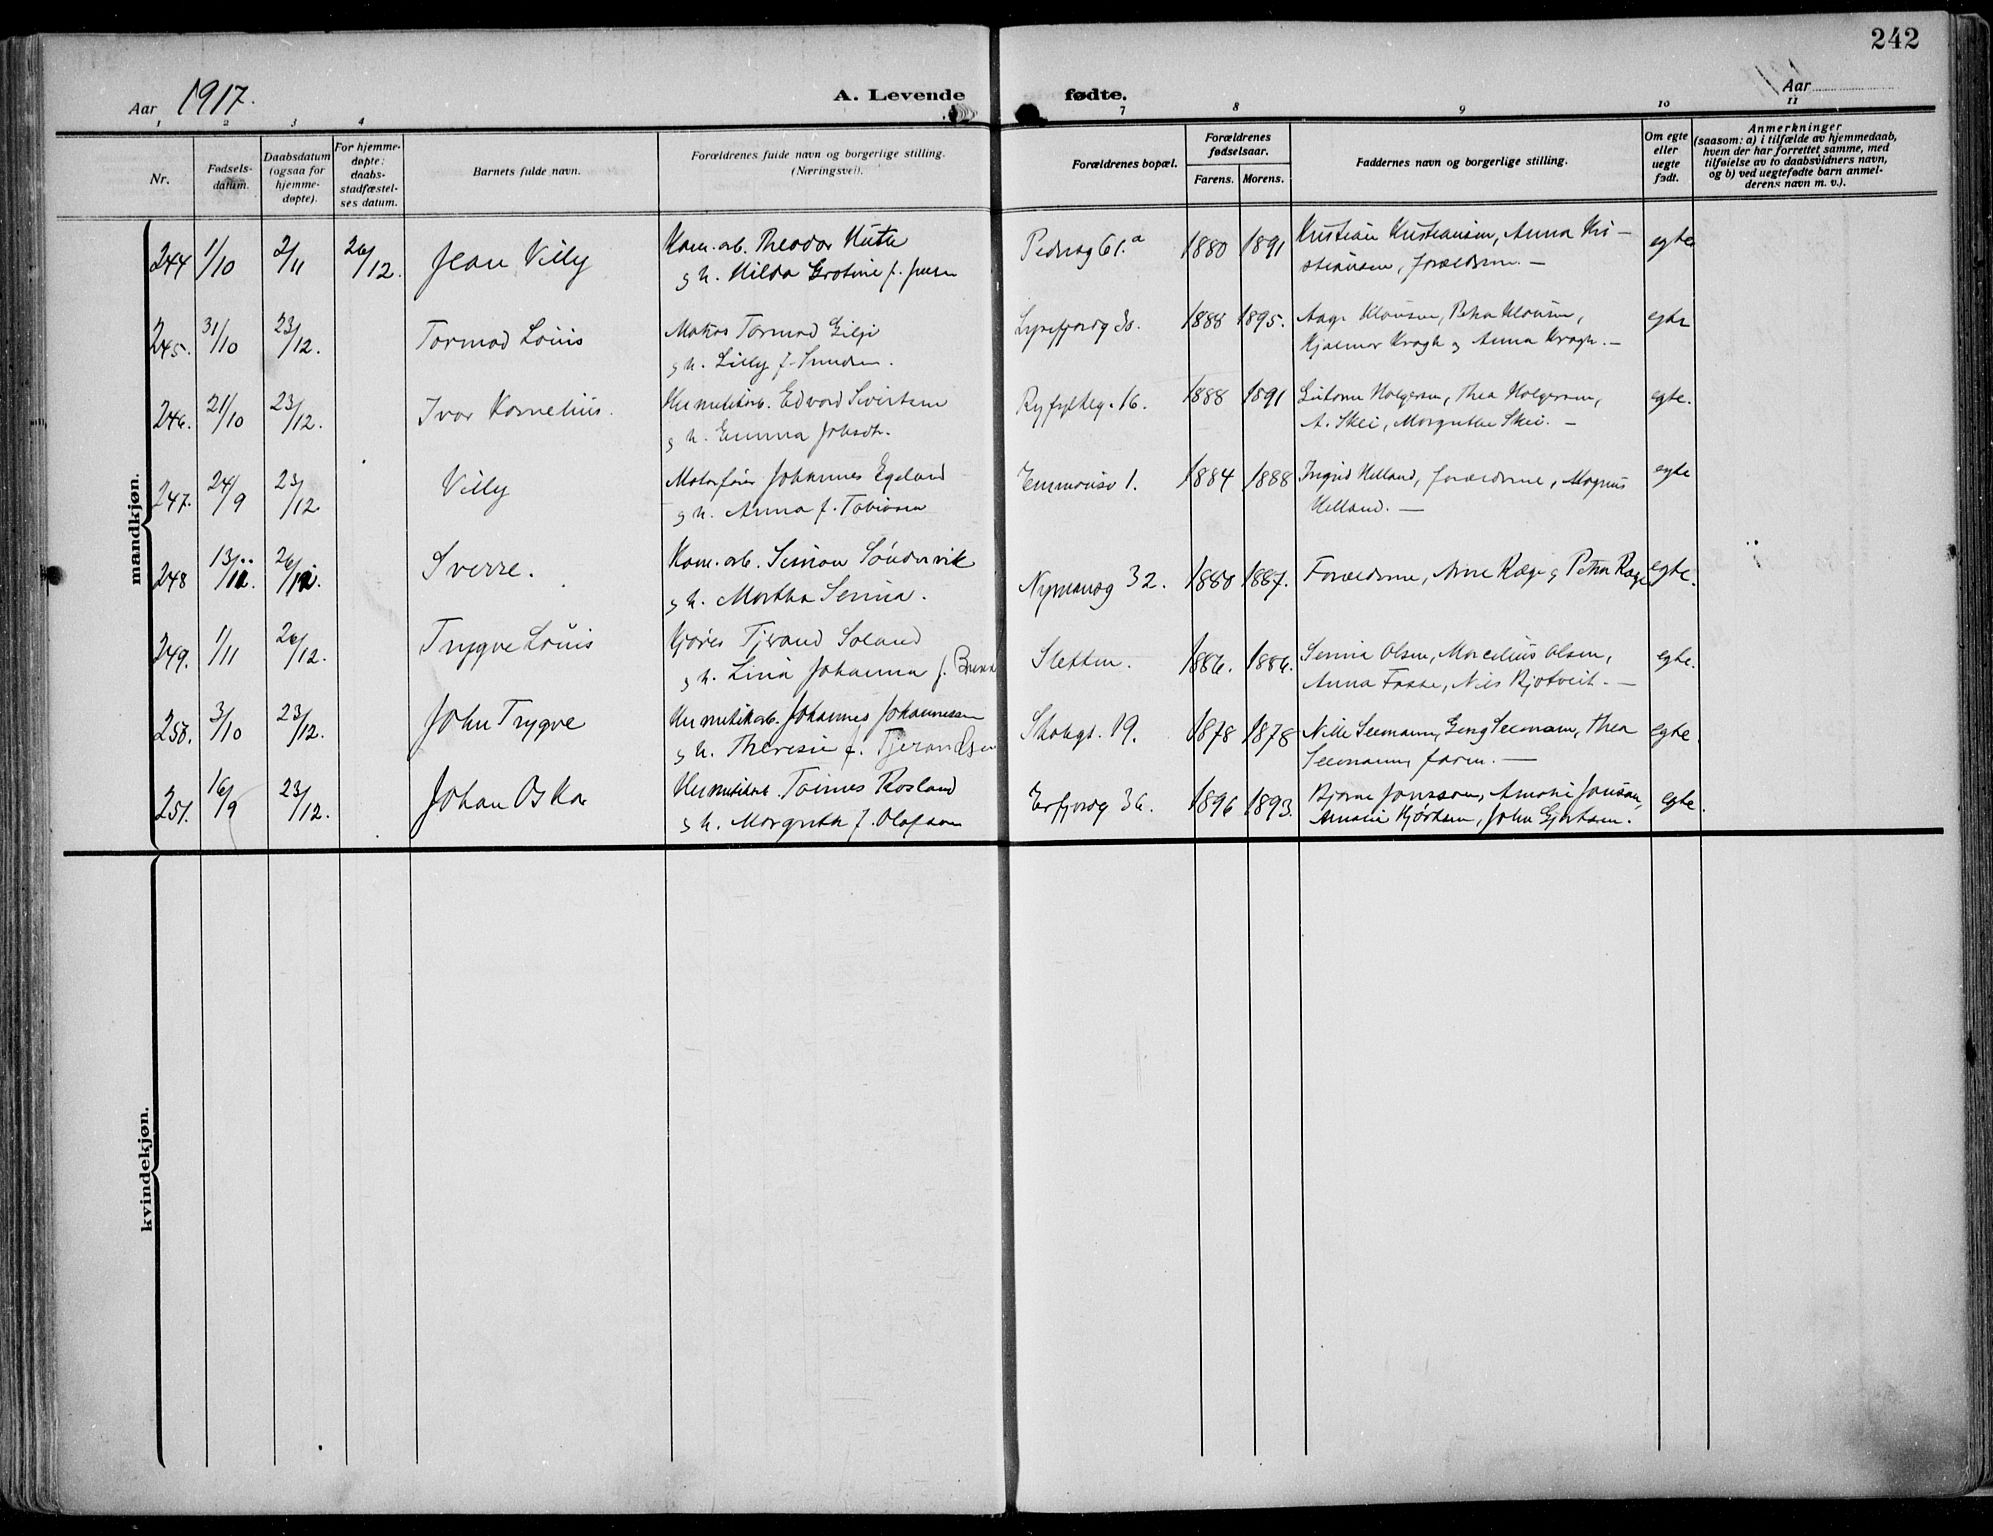 242
Aar 1917. A. Levende fødte. Aar
1 2 3 4 7 8 9 10 11
Nr.
Fødsels-
datum.
Daabsdatum
(ogsaa for
hjemme-
døpte).
For hjemme-
døpte:
daabs-
stadfæstel-
ses datum.
Barnets fulde navn.
Forældrenes fulde navn og borgerlige stilling.
(Næringsvei).
Forældrenes bopæl.
Forældrenes
fødselsaar.
Farens. Morens.
Faddernes navn og borgerlige stilling.
Om egte
eller
uegte
født.
Anmerkninger
(saasom: a) i tilfælde av hjemmedaab,
hvem der har forrettet samme, med
tilføielse av to daabsvidners navn,
og b) ved uegtefødte barn anmel-
derens navn m. v.).
mandkjøn.
244 1/10 2/11 26/12. Jean Villy Kom. arb. Theodor 1880 1891 Kristian Kristiansen, Anna Kri- egte
g h. Hilda f. stiansen, forældrene. —
245. 31/10 23/12. Tormod Louis Tormod Gilje Lysefjordg 30. 1888 1895. Aage Klausen, Petra Klausen, egte
g h. Lilly f. Hjalmar Kragh og Anna Kragh. —
246. 21/10 23/12. Ivar Kornelius. Hermetikarb. Edvard Sivertsen Ryfylkeg. 16. 1888 1891 Guttorm Holgersen, Thea Holgersen, egte.
g h. Emma Jobsdtr. A. Skei, Margrethe Skei. —
247. 24/9 23/12 Villy Motorfører Johannes Egeland Emmausv 1. 1884 1888 Ingrid Helland, forældrene, Magnus egte
g h. Anna f. Tobiasen Helland. —
248 13/11. 26/12. Sverre. Kom. arb. Simon Søndervik Nymansg 32. 1880 1887. Forældrene, Arne Ræge g Petra Ræge egte.
g h. Martha Serina.
249. 1/11 26/12. Trygve Louis Kjøres Tjerand Soland Sletten. 1886. 1886. Serina Olsen, Marcelius Olsen, egte.
g h. Lina Johanna f. Anna Fosse, Nils —
250. 3/10 23/12. John Trygve Hermetikarb. Johannes Johannessen Skolegt. 19. 1878 1878 Nille Seemann, Georg Seemann, Thea egte.
g h. Theresie f. Tjerandsen Seemann, faren. —
251. 16/9 23/12. Johan Oskar Hermetikarb. Tønnes Rosland Erfjordg 36. 1896 1893. Bjarne Jonassen, Amalie Jonassen, egte.
g h. Margrethe f. Olafsen Amalie Gjertsen, John Gjertsen.
kvindekjøn.